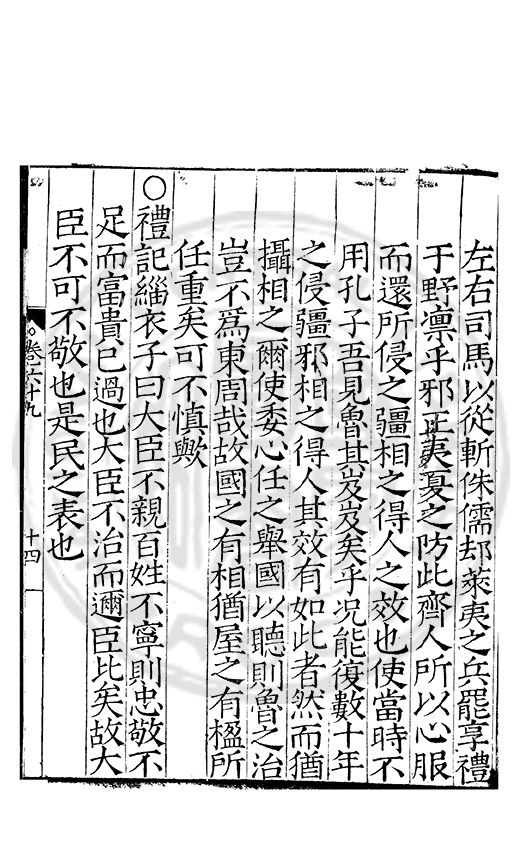 左右司馬以從斬侏儒却萊夷之兵罷享禮
于野凛乎邪正夷夏之防此齊人所以心服
而還所侵之疆相之得人之效也使當時不
用孔子吾見魯其岌岌矣乎况能復數十年
之侵疆邪相之得人其效有如此者然而猶
攝相之爾使委心任之舉國以聽則魯之治
豈不爲東周哉故國之有相猶屋之有楹所
任重矣可不慎歟
○禮記緇衣子曰大臣不親百姓不寧則忠敬不
足而富貴已過也大臣不治而邇臣比矣故大
臣不可不敬也是民之表也
卷六十九
十四